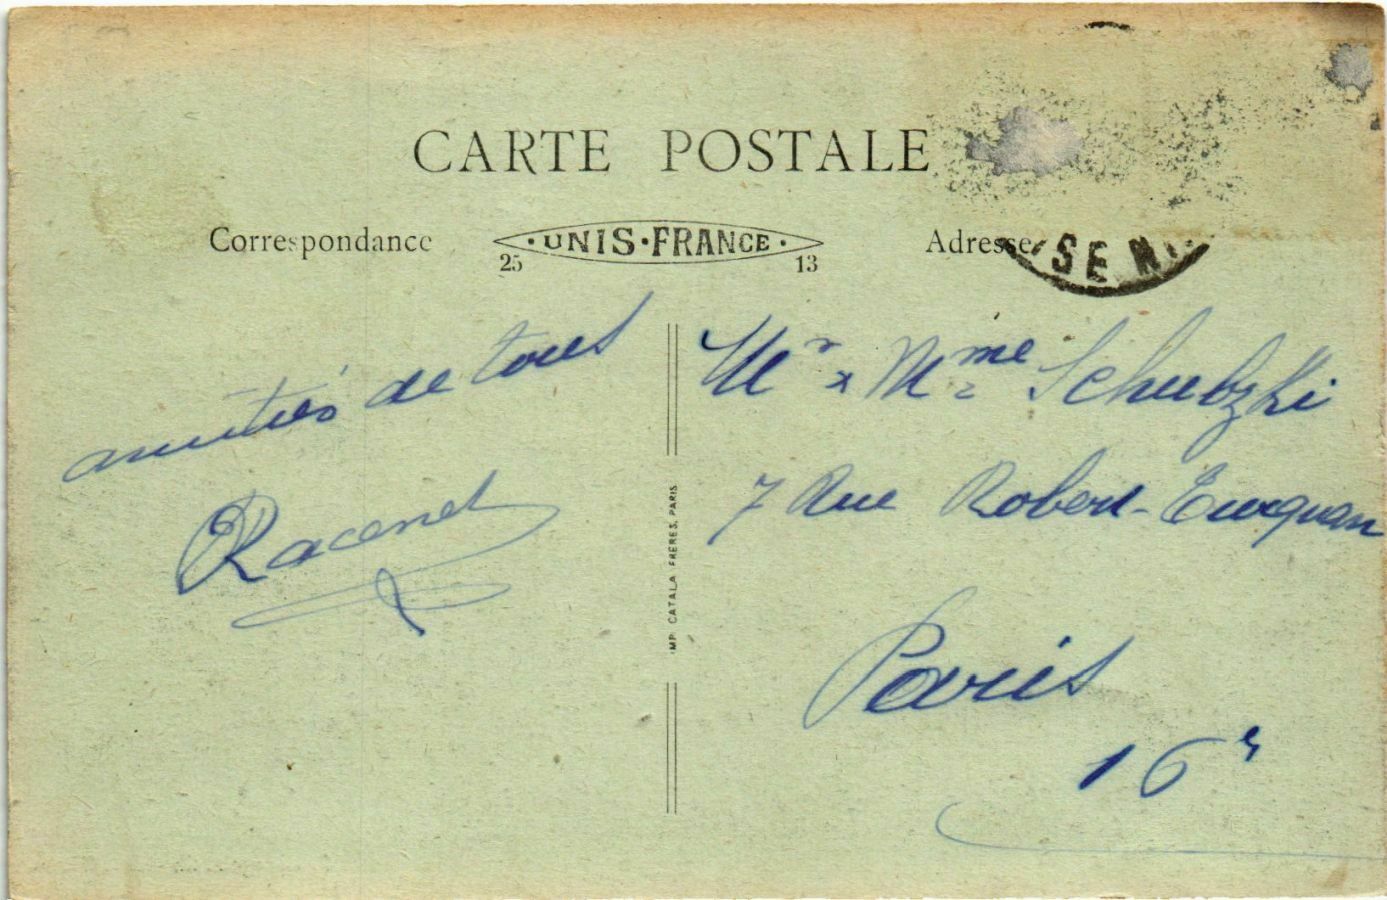 CARTE POSTALE
Correspondance
·UNIS·FRANCE·
25 13
Adresse
SEN
amitiés de tous
Racenet
IMP. CATALA FRERES, PARIS
Mr x Mme Schubzki
7 Rue Robert-Turquan
Paris
16e